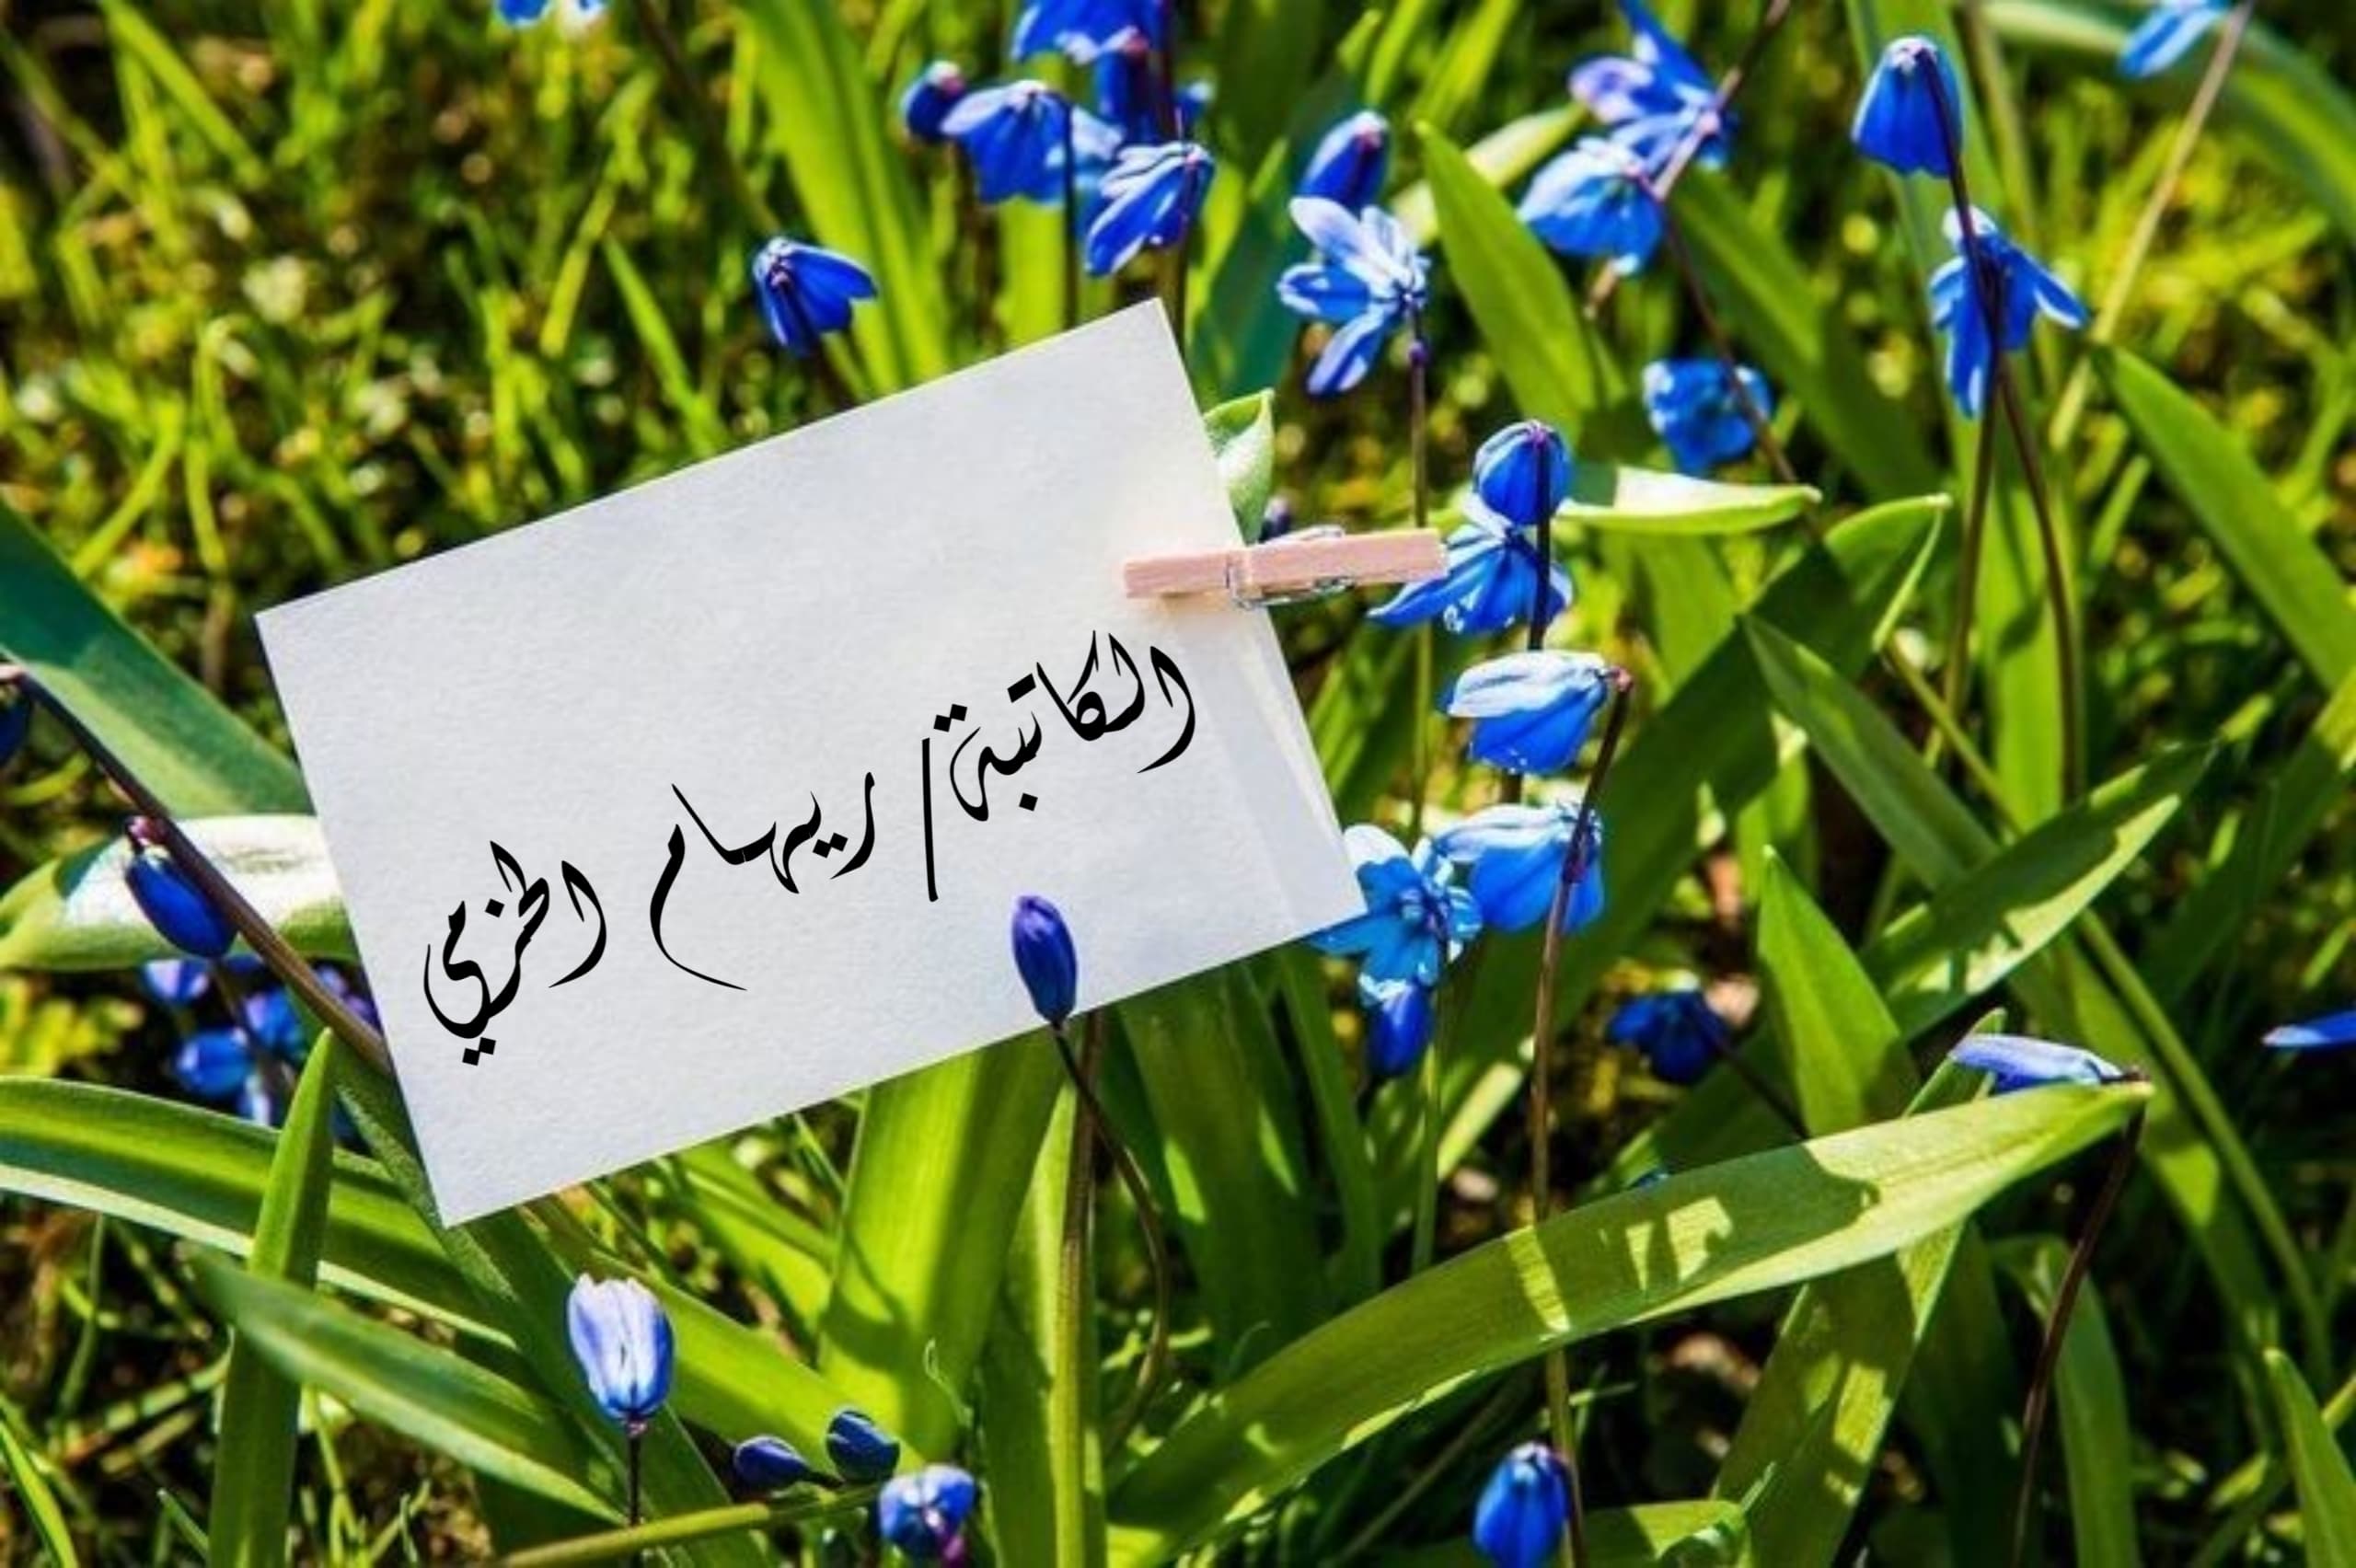 الكاتبة/ ريهام الخزمي